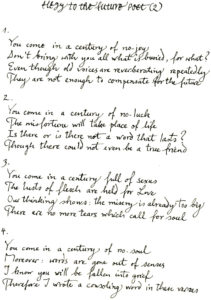 Elegy to the future Poet (2)
1.
You come in a century of no-joy
Don't bring with you all what is buried, for what?
Even though old voices are reverberating repeatedly
They are not enough to compensate for the future
2.
You come in a century of no-luck
The misfortune will take place of life
Is there or is there not a word that lasts?
Though there could not even be a true friend
3.
You come in a century full of sexes
The lusts of flesh are held for Love
Our thinking shows: the misery is already too big
There are no more tears which call for soul
4.
You come in a century of no-soul
Moreover: words are gone out of senses
I know you will be fallen into grief
Therefore I wrote a consoling word in these verses